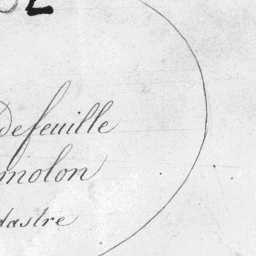 defeuille
molon
dastre